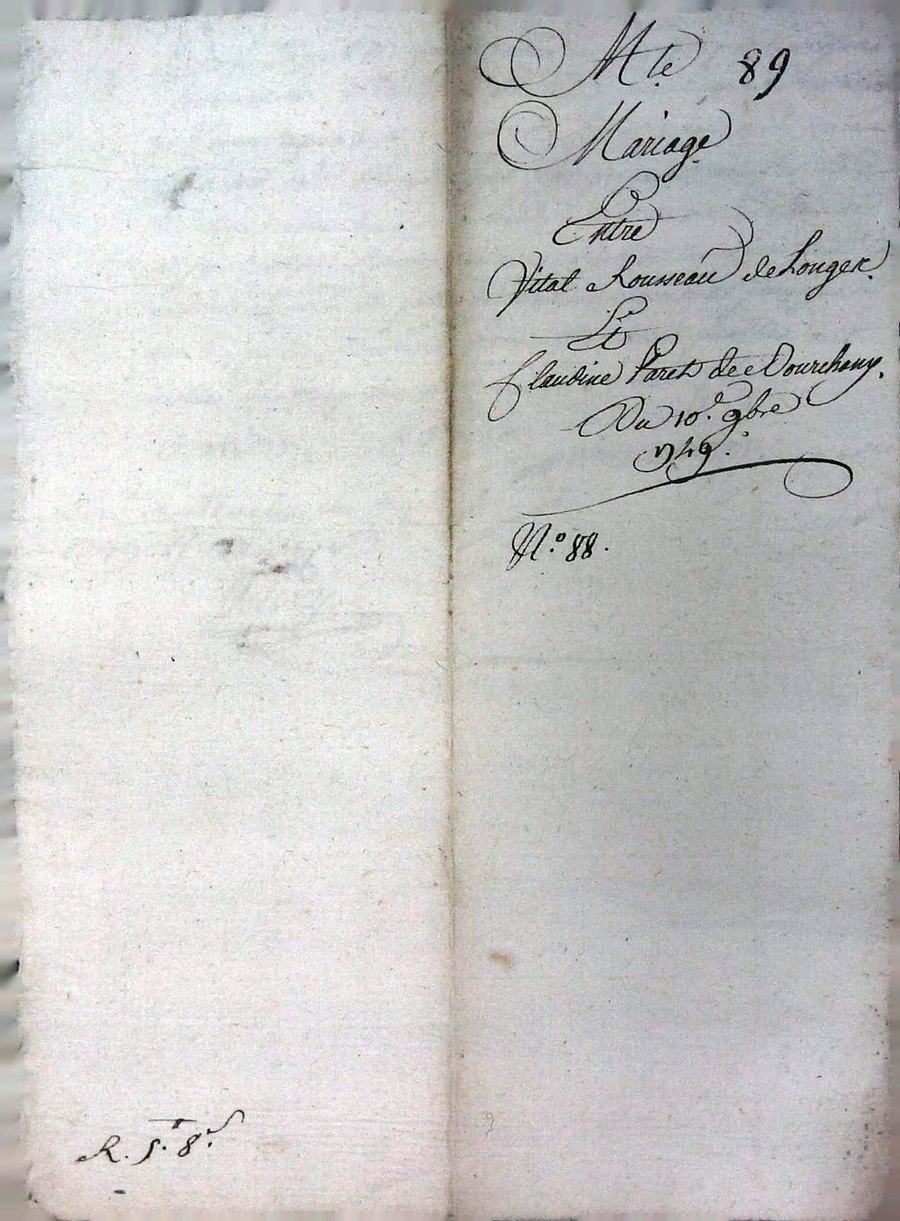 Mte. 89
Mariage
Entre
Vital Rousseau de Longer.
Et
Claudine Paret de Dourchany.
Du 10.e 9bre
1749.
N.o 88.
R. 5.t 8.s